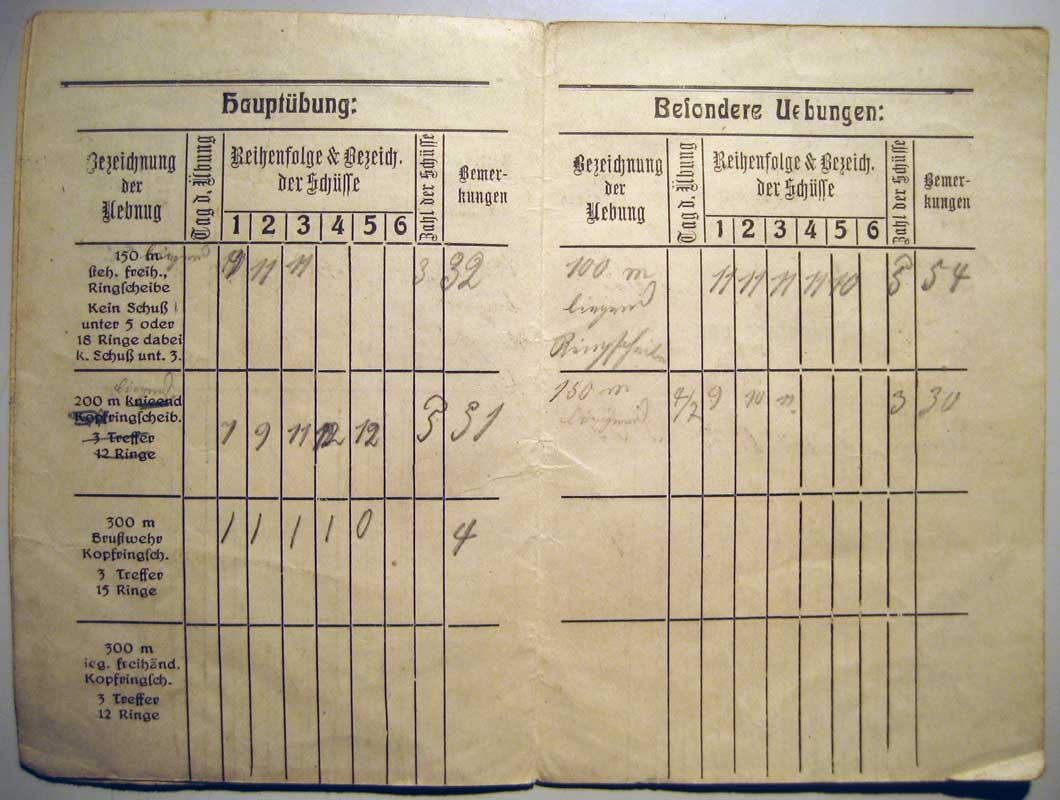 Hauptübung:
Bezeichnung der Uebnug
Tag d. Übung
Reihenfolge & Bezeich. der Schüsse
1 2 3 4 5 6
Zahl der Schüsse
Bemer-
kungen
150 m liegend
steh. freih.,
Ringscheibe
Kein Schuß
unter 5 oder
18 Ringe dabei
k. Schuß unt. 3.
11 11 3 32
liegend
200 m Knieend
Kopfringscheib.
3 Treffer
12 Ringe
7 9 11 12 12 5 51
300 m
Brustwehr
Kopfringsch.
3 Treffer
15 Ringe
1 1 1 1 0 4
300 m
ieg. freihänd.
Kopfringsch.
3 Treffer
12 Ringe
Besondere Uebungen:
Bezeichnung der Uebung
Tag d. Übung
Reihenfolge & Bezeich. der Schüsse
1 2 3 4 5 6
Zahl der Schüsse
Bemer-
kungen
100 m 11 11 11 11 10 5 54
liegend
Ringscheibe
150 m 4/7 9 10 11 3 30
liegend